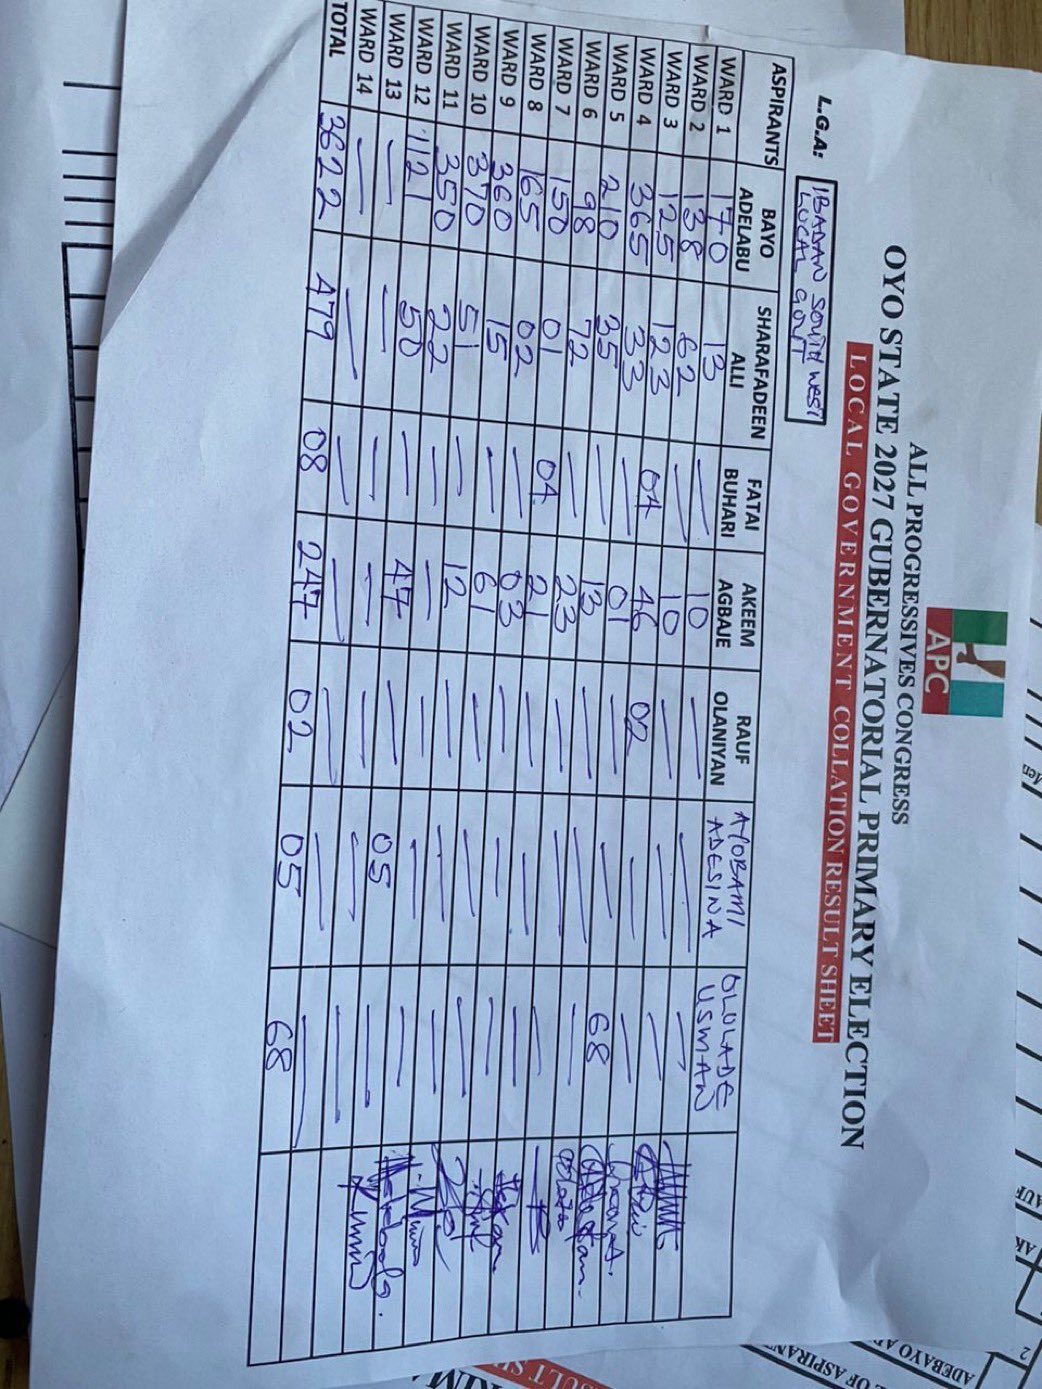 ALL PROGRESSIVES CONGRESS
APC
OYO STATE 2027 GUBERNATORIAL PRIMARY ELECTION
LOCAL GOVERNMENT COLLATION RESULT SHEET
L.G.A: IBADAN SOUTH WEST
LOCAL GOVT
ASPIRANTS BAYO ADELABU SHARAFADEEN ALLI FATAI BUHARI AKEEM AGBAJE RAUF OLANIYAN AJOBAMI ADESINA OLOLADE USMAN
WARD 1 170 13 — 10 — — —
WARD 2 138 62 — 10 — — —
WARD 3 125 123 04 46 02 — —
WARD 4 365 33 — 01 — — 68
WARD 5 210 35 — 13 — — —
WARD 6 98 72 — 23 — — —
WARD 7 150 01 04 21 — — —
WARD 8 165 02 — 03 — — —
WARD 9 360 15 — 61 — — —
WARD 10 370 51 — 12 — — —
WARD 11 350 22 — — — — —
WARD 12 1121 50 — 47 — 05 —
WARD 13 — — — — — — —
WARD 14 — — — — — — —
TOTAL 3622 479 08 247 02 05 68